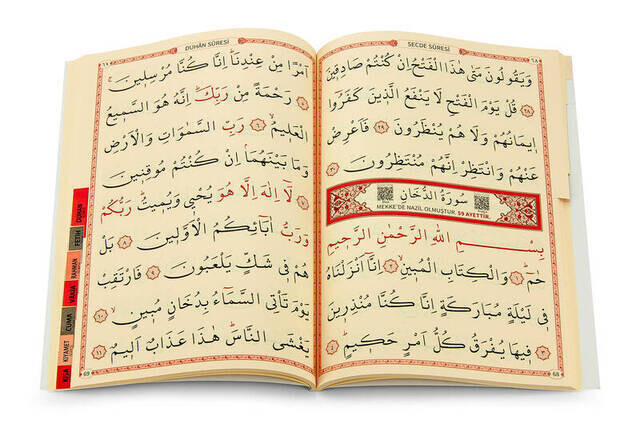 SECDE SÛRESİ
٦٨
وَيَقُولُونَ مَتٰى هٰذَا الْفَتْحُ اِنْ كُنْتُمْ صَادِقٖينَ
﴿٢٨﴾ قُلْ يَوْمَ الْفَتْحِ لَا يَنْفَعُ الَّذٖينَ كَفَرُٓوا
اٖيمَانُهُمْ وَلَا هُمْ يُنْظَرُونَ ﴿٢٩﴾ فَاَعْرِضْ
عَنْهُمْ وَانْتَظِرْ اِنَّهُمْ مُنْتَظِرُونَ ﴿٣٠﴾
سُورَةُ الدُّخَانِ
MEKKE'DE NAZİL OLMUŞTUR. 59 AYETTİR.
بِسْمِ اللّٰهِ الرَّحْمٰنِ الرَّحٖيمِ
حٰمٓ ﴿١﴾ وَالْكِتَابِ الْمُبٖينِ ﴿٢﴾ اِنَّٓا اَنْزَلْنَاهُ
فٖى لَيْلَةٍ مُبَارَكَةٍ اِنَّا كُنَّا مُنْذِرٖينَ
﴿٣﴾ فٖيهَا يُفْرَقُ كُلُّ اَمْرٍ حَكٖيمٍ ﴿٤﴾
68
DUHÂN SÛRESİ
٦٩
اَمْرًا مِنْ عِنْدِنَا اِنَّا كُنَّا مُرْسِلٖينَ
﴿٥﴾ رَحْمَةً مِنْ رَبِّكَ اِنَّهُ هُوَ السَّمٖيعُ
الْعَلٖيمُ ﴿٦﴾ رَبِّ السَّمٰوَاتِ وَالْاَرْضِ
وَمَا بَيْنَهُمَا اِنْ كُنْتُمْ مُوقِنٖينَ
﴿٧﴾ لَٓا اِلٰهَ اِلَّا هُوَ يُحْيٖى وَيُمٖيتُ رَبُّكُمْ
وَرَبُّ اٰبَٓائِكُمُ الْاَوَّلٖينَ ﴿٨﴾ بَلْ
هُمْ فٖى شَكٍّ يَلْعَبُونَ ﴿٩﴾ فَارْتَقِبْ
يَوْمَ تَاْتِى السَّمَٓاءُ بِدُخَانٍ مُبٖينٍ ﴿١٠﴾
يَغْشَى النَّاسَ هٰذَا عَذَابٌ اَلٖيمٌ ﴿١١﴾
69
DUHAN
FETİH
RAHMAN
VAKIA
CUMA
KIYAMET
KISA